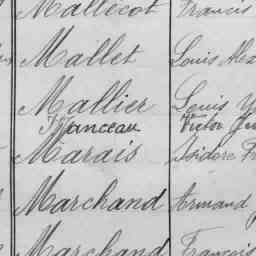 Mallecot Francis
Mallet Louis Alex
Mallier Louis
Manceau Victor
Marais Isidore Fr
Marchand Armand
Marchand François